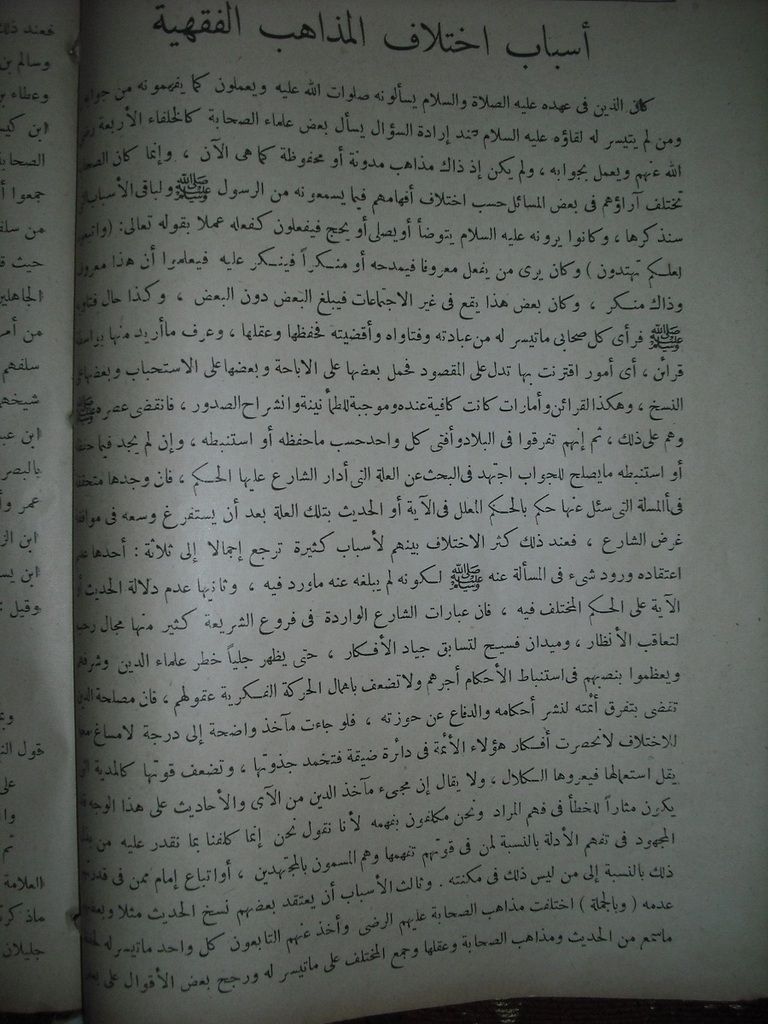 أسباب اختلاف المذاهب الفقهية
كان الذين فى عهده عليه الصلاة والسلام يسألونه صلوات الله عليه ويعملون كما يفهمونه من
ومن لم يتيسر له لقاؤه عليه السلام عند إرادة السؤال يسأل بعض علماء الصحابة كالخلفاء الأربعة
الله عنهم ويعمل بجوابه ، ولم يكن إذ ذاك مذاهب مدونة أو محفوظة كما هى الآن ، وإنما كان
تختلف آراؤهم فى بعض المسائل حسب اختلاف أفهامهم فيما يسمعونه من الرسول ﷺ ولباقى الأسباب
سنذكرها ، وكانوا يرونه عليه السلام يتوضأ أو يصلى أو يحج فيفعلون كفعله عملا بقوله تعالى: (
لعلكم تهتدون ) وكان يرى من يفعل معروفا فيمدحه أو منكراً فينكر عليه فيعلموا أن هذا معروف
وذاك منكر ، وكان بعض هذا يقع فى غير الاجتماعات فيبلغ البعض دون البعض ، وكذا حال
ﷺ فرأى كل صحابى ماتيسر له من عبادته وفتاواه وأقضيته فحفظها وعقلها ، وعرف ماأريد منها
قرائن ، أى أمور اقترنت بها تدل على المقصود فحمل بعضها على الاباحة وبعضها على الاستحباب
النسخ ، وهكذا القرائن وأمارات كانت كافية عنده وموجبة للطمأنينة وانشراح الصدور ، فانقضى عصره
وهم على ذلك ، ثم إنهم تفرقوا فى البلاد وأفتى كل واحد حسب ماحفظه أو استنبطه ، وإن لم يجد فيما
أو استنبطه مايصلح للجواب اجتهد فى البحث عن العلة التى أدار الشارع عليها الحكم ، فان وجدها
فى المسألة التى سئل عنها حكم بالحكم المعلل فى الآية أو الحديث بتلك العلة بعد أن يستفرغ وسعه فى
غرض الشارع ، فعند ذلك كثر الاختلاف بينهم لأسباب كثيرة ترجع إجمالا إلى ثلاثة : أحدها
اعتقاده ورود شىء فى المسألة عنه ﷺ لكونه لم يبلغه عنه ماورد فيه ، وثانيها عدم دلالة الحديث
الآية على الحكم المختلف فيه ، فان عبارات الشارع الواردة فى فروع الشريعة كثير منها مجال
لتعاقب الأنظار ، وميدان فسيح لتسابق جياد الأفكار ، حتى يظهر جلياً خطر علماء الدين
ويعظموا بنصبهم فى استنباط الأحكام أجرهم ولا تضعف باهمال الحركة الفكرية عقولهم ، فان مصلحة
تقضى بتفرق أئمته لنشر أحكامه والدفاع عن حوزته ، فلو جاءت مآخذ واضحة إلى درجة لامساغ
للاختلاف لانحصرت أفكار هؤلاء الأئمة فى دائرة ضيقة فتخمد جذوتها ، وتضعف قوتها كالمدية
يقل استعمالها فيعروها الكلال ، ولا يقال إن مجىء مآخذ الدين من الآى والأحاديث على هذا
يكون مثاراً للخطأ فى فهم المراد ونحن مكلفون بفهمه لأنا نقول نحن إنما كلفنا بما نقدر عليه من
المجهود فى تفهم الأدلة بالنسبة لمن فى قوتهم تفهمها وهم المسمون بالمجتهدين ، أو اتباع إمام ممن فى
ذلك بالنسبة إلى من ليس ذلك فى مكنته . وثالث الأسباب أن يعتقد بعضهم نسخ الحديث مثلا
عدمه ( وبالجملة ) اختلفت مذاهب الصحابة عليهم الرضى وأخذ عنهم التابعون كل واحد ماتيسر له
من الحديث ومذاهب الصحابة وعقلها وجمع المختلف على ماتيسر له ورجح بعض الأقوال على